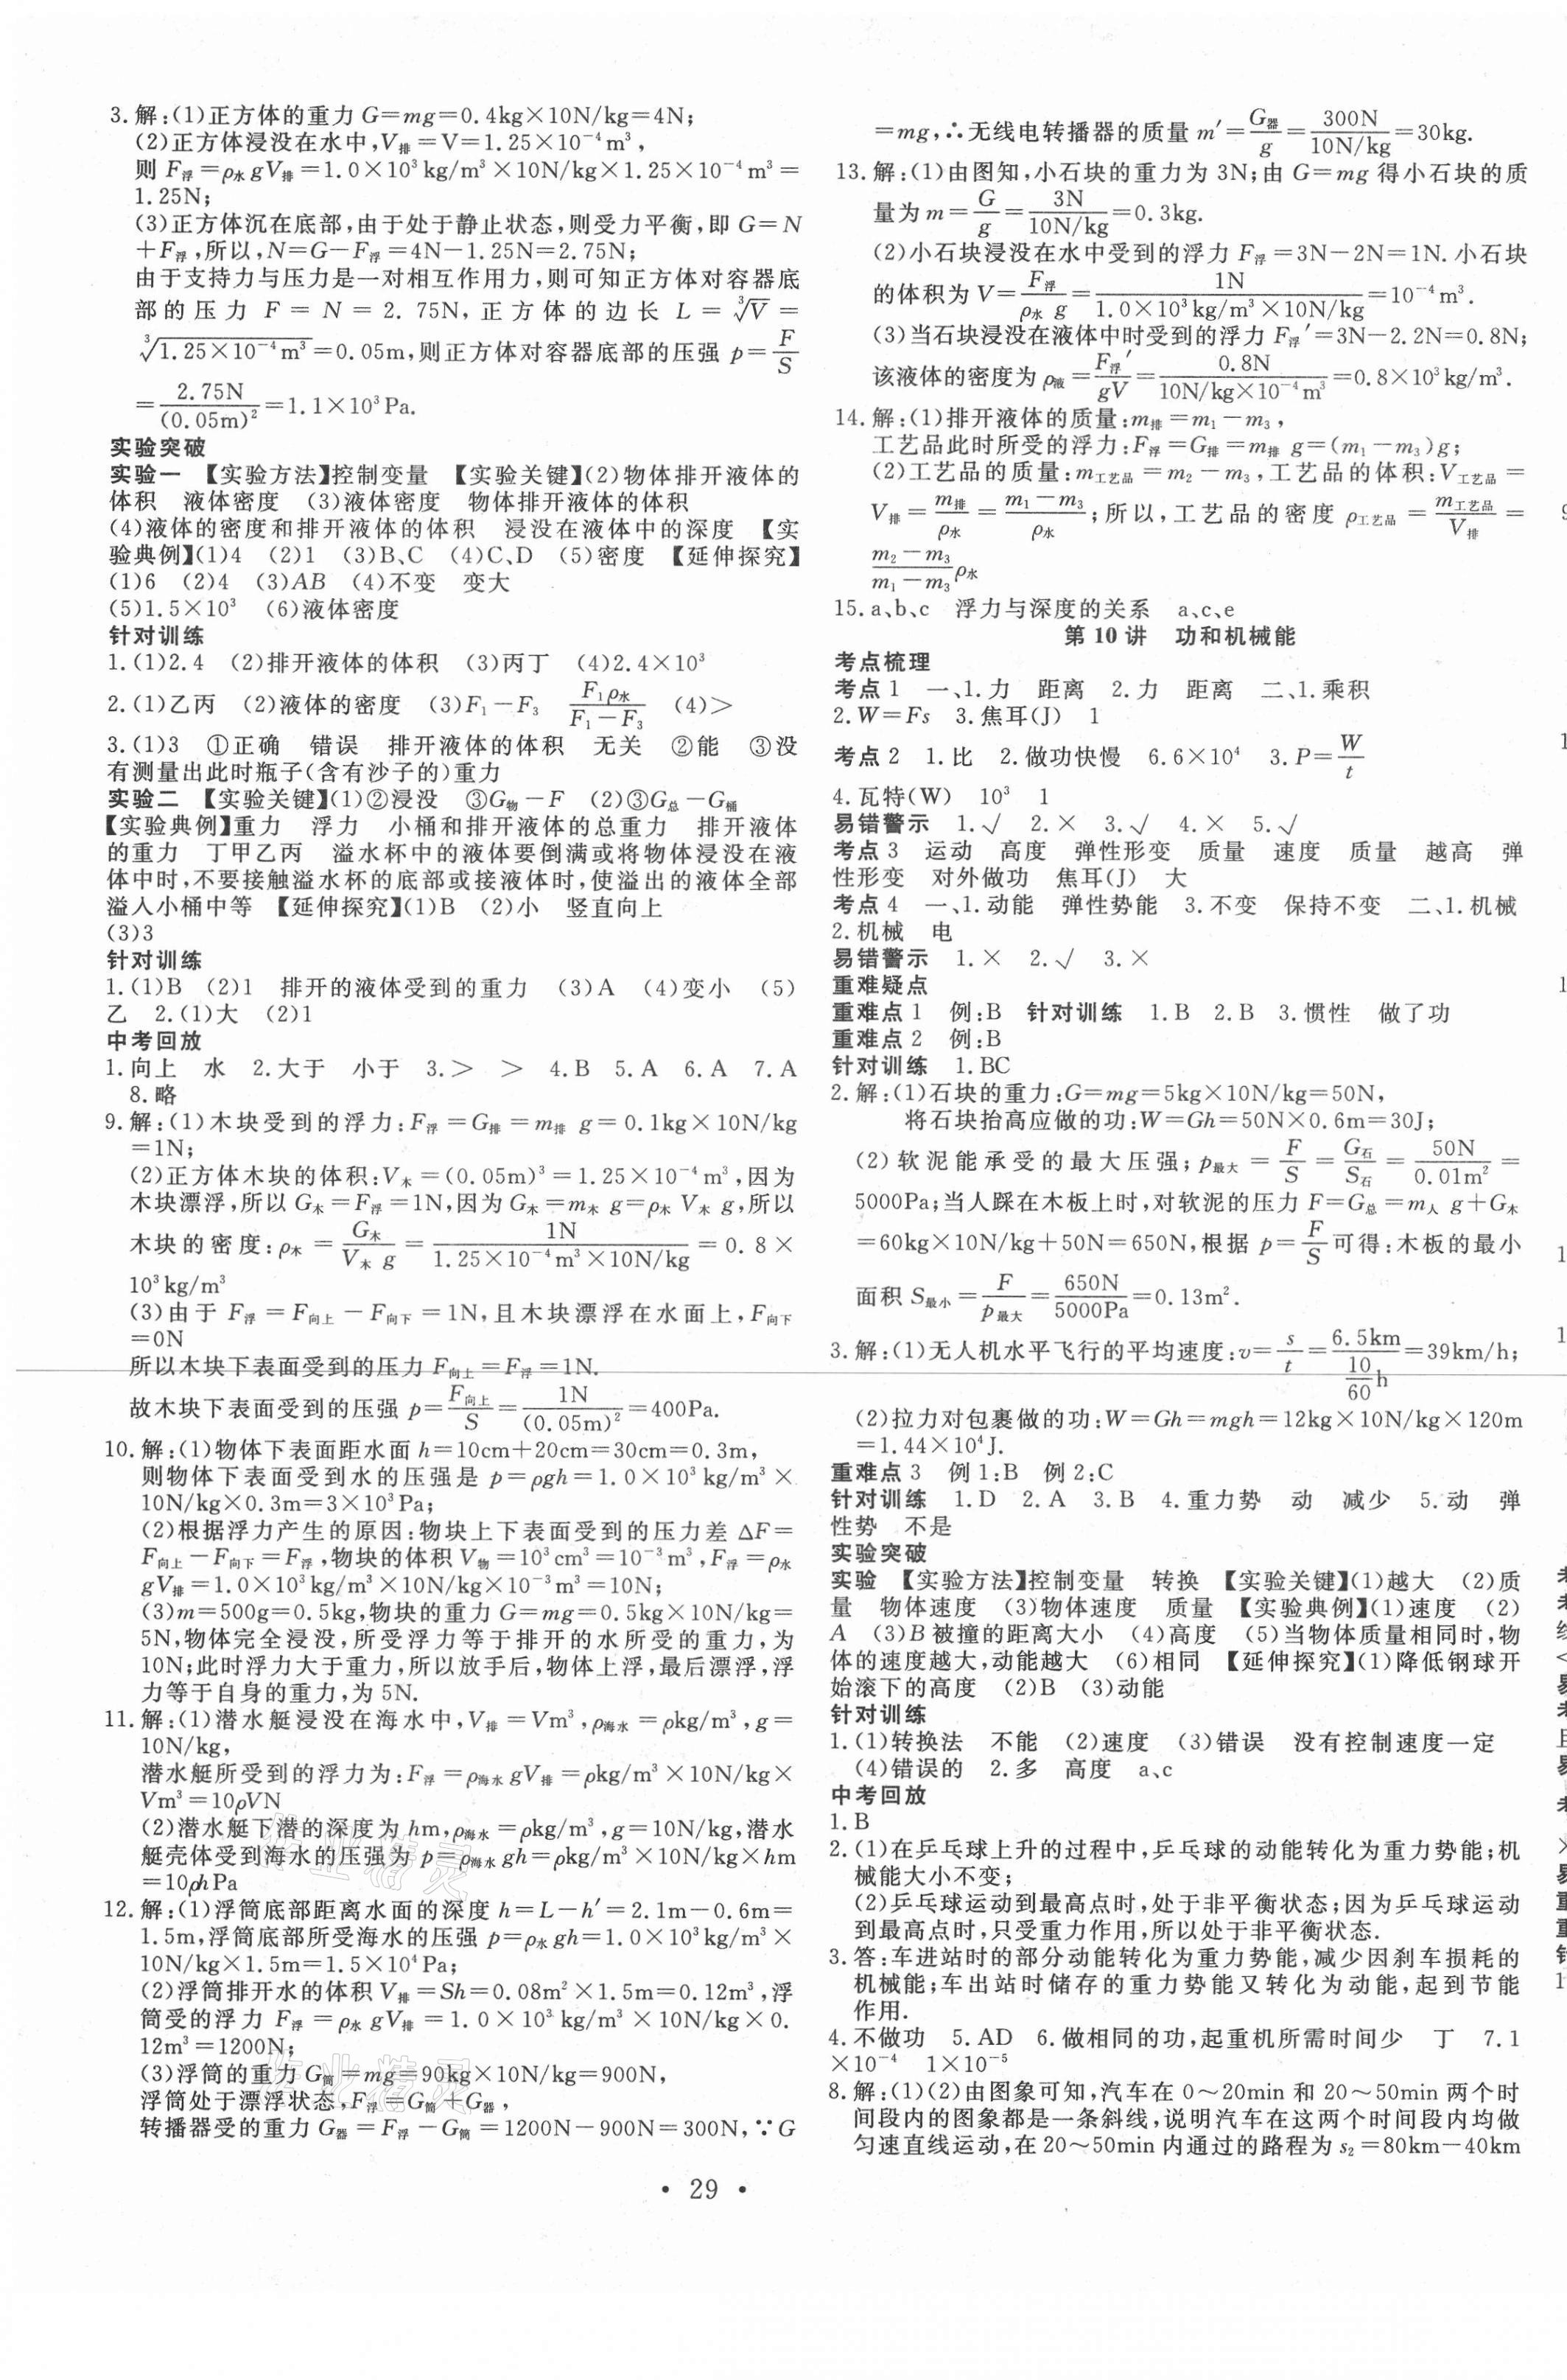 3.解:(1)正方体的重力 G=mg=0.4kg×10N/kg=4N;
(2)正方体浸没在水中,V排=V=1.25×10⁻⁴m³,
则 F浮=ρ水gV排=1.0×10³kg/m³×10N/kg×1.25×10⁻⁴m³=
1.25N;
(3)正方体沉在底部,由于处于静止状态,则受力平衡,即 G=N
+F浮,所以,N=G-F浮=4N-1.25N=2.75N;
由于支持力与压力是一对相互作用力,则可知正方体对容器底
部的压力 F=N=2.75N,正方体的边长 L=∛V=
∛1.25×10⁻⁴m³=0.05m,则正方体对容器底部的压强 p=F/S
=2.75N/(0.05m)²=1.1×10³Pa.
实验突破
实验一 【实验方法】控制变量 【实验关键】(2)物体排开液体的
体积 液体密度 (3)液体密度 物体排开液体的体积
(4)液体的密度和排开液体的体积 浸没在液体中的深度 【实
验典例】(1)4 (2)1 (3)B、C (4)C、D (5)密度 【延伸探究】
(1)6 (2)4 (3)AB (4)不变 变大
(5)1.5×10³ (6)液体密度
针对训练
1.(1)2.4 (2)排开液体的体积 (3)丙丁 (4)2.4×10³
2.(1)乙丙 (2)液体的密度 (3)F₁-F₃ F₁ρ水/(F₁-F₃) (4)>
3.(1)3 ①正确 错误 排开液体的体积 无关 ②能 ③没
有测量出此时瓶子(含有沙子的)重力
实验二 【实验关键】(1)②浸没 ③G物-F (2)③G总-G桶
【实验典例】重力 浮力 小桶和排开液体的总重力 排开液体
的重力 丁甲乙丙 溢水杯中的液体要倒满或将物体浸没在液
体中时,不要接触溢水杯的底部或接液体时,使溢出的液体全部
溢入小桶中等 【延伸探究】(1)B (2)小 竖直向上
(3)3
针对训练
1.(1)B (2)1 排开的液体受到的重力 (3)A (4)变小 (5)
乙 2.(1)大 (2)1
中考回放
1.向上 水 2.大于 小于 3.> > 4.B 5.A 6.A 7.A
8.略
9.解:(1)木块受到的浮力:F浮=G排=m排g=0.1kg×10N/kg
=1N;
(2)正方体木块的体积:V木=(0.05m)³=1.25×10⁻⁴m³,因为
木块漂浮,所以 G木=F浮=1N,因为 G木=m木g=ρ木V木g,所以
木块的密度:ρ木=G木/(V木g)=1N/(1.25×10⁻⁴m³×10N/kg)=0.8×
10³kg/m³
(3)由于 F浮=F向上-F向下=1N,且木块漂浮在水面上,F向下
=0N
所以木块下表面受到的压力 F向上=F浮=1N.
故木块下表面受到的压强 p=F向上/S=1N/(0.05m)²=400Pa.
10.解:(1)物体下表面距水面 h=10cm+20cm=30cm=0.3m,
则物体下表面受到水的压强是 p=ρgh=1.0×10³kg/m³×
10N/kg×0.3m=3×10³Pa;
(2)根据浮力产生的原因:物块上下表面受到的压力差 ΔF=
F向上-F向下=F浮,物块的体积 V物=10³cm³=10⁻³m³,F浮=ρ水
gV排=1.0×10³kg/m³×10N/kg×10⁻³m³=10N;
(3)m=500g=0.5kg,物块的重力 G=mg=0.5kg×10N/kg=
5N,物体完全浸没,所受浮力等于排开的水所受的重力,为
10N;此时浮力大于重力,所以放手后,物体上浮,最后漂浮,浮
力等于自身的重力,为 5N.
11.解:(1)潜水艇浸没在海水中,V排=Vm³,ρ海水=ρkg/m³,g=
10N/kg,
潜水艇所受到的浮力为:F浮=ρ海水gV排=ρkg/m³×10N/kg×
Vm³=10ρVN
(2)潜水艇下潜的深度为 hm,ρ海水=ρkg/m³,g=10N/kg,潜水
艇壳体受到海水的压强为 p=ρ海水gh=ρkg/m³×10N/kg×hm
=10ρhPa
12.解:(1)浮筒底部距离水面的深度 h=L-h′=2.1m-0.6m=
1.5m,浮筒底部所受海水的压强 p=ρ水gh=1.0×10³kg/m³×
10N/kg×1.5m=1.5×10⁴Pa;
(2)浮筒排开水的体积 V排=Sh=0.08m²×1.5m=0.12m³,浮
筒受的浮力 F浮=ρ水gV排=1.0×10³kg/m³×10N/kg×0.
12m³=1200N;
(3)浮筒的重力 G筒=mg=90kg×10N/kg=900N,
浮筒处于漂浮状态,F浮=G筒+G器,
转播器受的重力 G器=F浮-G筒=1200N-900N=300N,∵G
=mg,∴无线电转播器的质量 m′=G器/g=300N/(10N/kg)=30kg.
13.解:(1)由图知,小石块的重力为 3N;由 G=mg 得小石块的质
量为 m=G/g=3N/(10N/kg)=0.3kg.
(2)小石块浸没在水中受到的浮力 F浮=3N-2N=1N.小石块
的体积为 V=F浮/(ρ水g)=1N/(1.0×10³kg/m³×10N/kg)=10⁻⁴m³.
(3)当石块浸没在液体中时受到的浮力 F浮′=3N-2.2N=0.8N;
该液体的密度为 ρ液=F浮′/(gV)=0.8N/(10N/kg×10⁻⁴m³)=0.8×10³kg/m³.
14.解:(1)排开液体的质量:m排=m₁-m₃,
工艺品此时所受的浮力:F浮=G排=m排g=(m₁-m₃)g;
(2)工艺品的质量:m工艺品=m₂-m₃,工艺品的体积:V工艺品=
V排=m排/ρ水=(m₁-m₃)/ρ水;所以,工艺品的密度 ρ工艺品=m工艺品/V排=
(m₂-m₃)/(m₁-m₃)ρ水
15.a、b、c 浮力与深度的关系 a、c、e
第 10 讲 功和机械能
考点梳理
考点 1 一、1.力 距离 2.力 距离 二、1.乘积
2.W=Fs 3.焦耳(J) 1
考点 2 1.比 2.做功快慢 6.6×10⁴ 3.P=W/t
4.瓦特(W) 10³ 1
易错警示 1.√ 2.× 3.√ 4.× 5.√
考点 3 运动 高度 弹性形变 质量 速度 质量 越高 弹
性形变 对外做功 焦耳(J) 大
考点 4 一、1.动能 弹性势能 3.不变 保持不变 二、1.机械
2.机械 电
易错警示 1.× 2.√ 3.×
重难疑点
重难点 1 例:B 针对训练 1.B 2.B 3.惯性 做了功
重难点 2 例:B
针对训练 1.BC
2.解:(1)石块的重力:G=mg=5kg×10N/kg=50N,
将石块抬高应做的功:W=Gh=50N×0.6m=30J;
(2)软泥能承受的最大压强;p最大=F/S=G石/S石=50N/0.01m²=
5000Pa;当人踩在木板上时,对软泥的压力 F=G总=m人g+G木
=60kg×10N/kg+50N=650N,根据 p=F/S可得:木板的最小
面积 S最小=F/p最大=650N/5000Pa=0.13m².
3.解:(1)无人机水平飞行的平均速度:v=s/t=6.5km/(10/60 h)=39km/h;
(2)拉力对包裹做的功:W=Gh=mgh=12kg×10N/kg×120m
=1.44×10⁴J.
重难点 3 例 1:B 例 2:C
针对训练 1.D 2.A 3.B 4.重力势 动 减少 5.动 弹
性势 不是
实验突破
实验 【实验方法】控制变量 转换 【实验关键】(1)越大 (2)质
量 物体速度 (3)物体速度 质量 【实验典例】(1)速度 (2)
A (3)B 被撞的距离大小 (4)高度 (5)当物体质量相同时,物
体的速度越大,动能越大 (6)相同 【延伸探究】(1)降低钢球开
始滚下的高度 (2)B (3)动能
针对训练
1.(1)转换法 不能 (2)速度 (3)错误 没有控制速度一定
(4)错误的 2.多 高度 a、c
中考回放
1.B
2.(1)在乒乓球上升的过程中,乒乓球的动能转化为重力势能;机
械能大小不变;
(2)乒乓球运动到最高点时,处于非平衡状态;因为乒乓球运动
到最高点时,只受重力作用,所以处于非平衡状态.
3.答:车进站时的部分动能转化为重力势能,减少因刹车损耗的
机械能;车出站时储存的重力势能又转化为动能,起到节能
作用.
4.不做功 5.AD 6.做相同的功,起重机所需时间少 丁 7.1
×10⁻⁴ 1×10⁻⁵
8.解:(1)(2)由图象可知,汽车在 0～20min 和 20～50min 两个时
间段内的图象都是一条斜线,说明汽车在这两个时间段内均做
匀速直线运动,在 20～50min 内通过的路程为 s₂=80km-40km
• 29 •
作业精灵
作业精灵